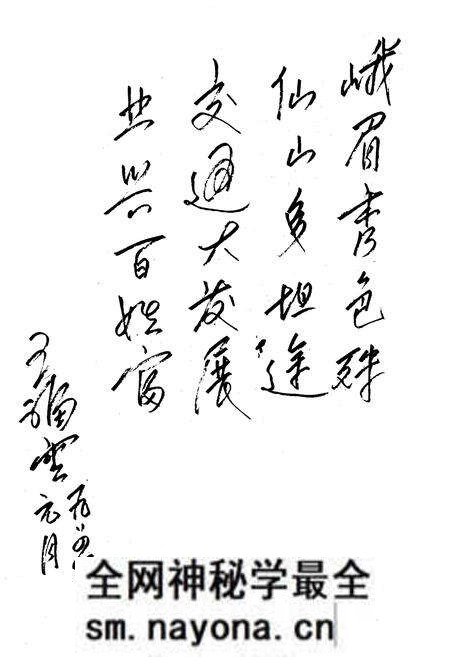 峨眉秀色殊
仙山多坦途
交通大发展
业兴百姓富
雲
元月
全网神秘学最全
sm.nayona.cn